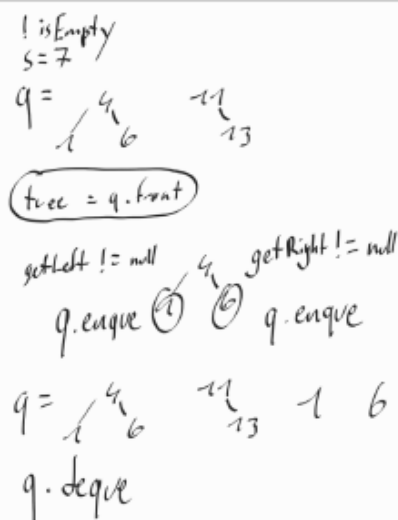 ! isEmpty
s=7
q = 4 11
1 6 13
tree = q.front
getLeft != null 4 getRight != null
q.enque 1 6 q.enque
q = 4 11 1 6
1 6 13
q.deque